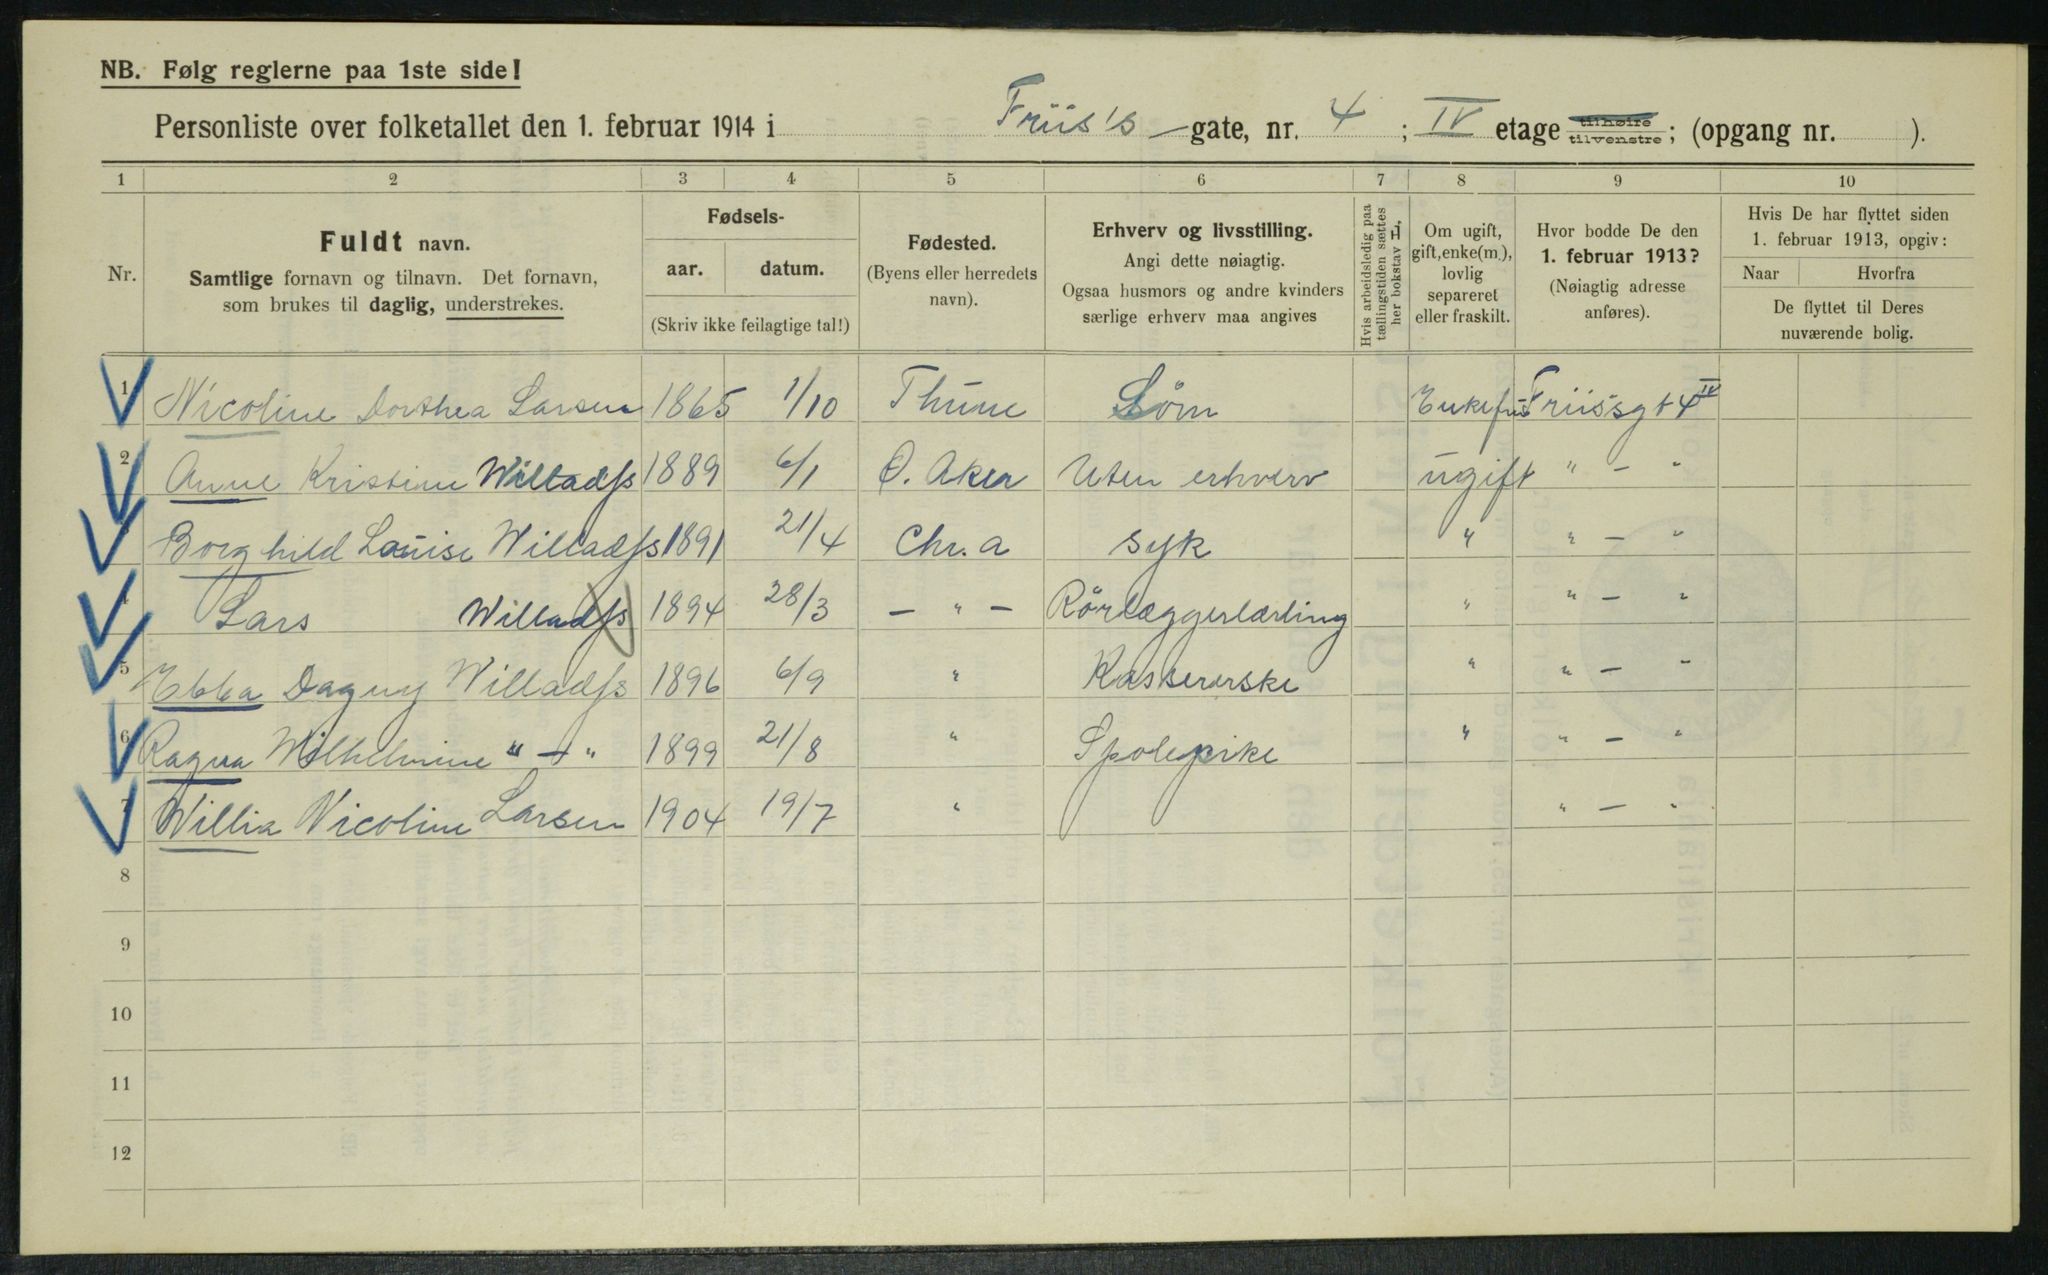 NB. Følg reglerne paa 1ste side!
Personliste over folketallet den 1. februar 1914 i Friis's gate, nr. 4 ; IV etage tilhøire tilvenstre; (opgang nr. ).
1 2 3 4 5 6 7 8 9 10
Nr.
Fuldt navn.
Samtlige fornavn og tilnavn. Det fornavn,
som brukes til daglig, understrekes.
Fødsels-
aar. datum.
(Skriv ikke feilagtige tal!)
Fødested.
(Byens eller herredets
navn).
Erhverv og livsstilling.
Angi dette nøiagtig.
Ogsaa husmors og andre kvinders
særlige erhverv maa angives
Hvis arbeidsledig paa
tællingstiden sættes
her bokstav L,
Om ugift,
gift, enke(m.),
lovlig
separeret
eller fraskilt.
Hvor bodde De den
1. februar 1913?
(Nøiagtig adresse
anføres).
Hvis De har flyttet siden
1. februar 1913, opgiv:
Naar Hvorfra
De flyttet til Deres
nuværende bolig.
1 Nicoline Dorthea Larsen 1865 1/10 Thune Söm Enkefru Friissgt 4 IV
2 Anne Kristine Willadss 1889 6/1 Ö. Aker Uten erhverv ugift " — "
3 Borghild Louise Willadss 1891 21/4 Chr. a syk " " — "
4 Lars Willadss 1894 28/3 — " — Rörlæggerlærling " " — "
5 Ebba Dagny Willadss 1896 6/9 " Kassererske " " — "
6 Ragna Wilhelmine " — " 1899 21/8 " Spolepike " " — "
7 Willia Nicoline Larsen 1904 19/7 " " — "
8
9
10
11
12